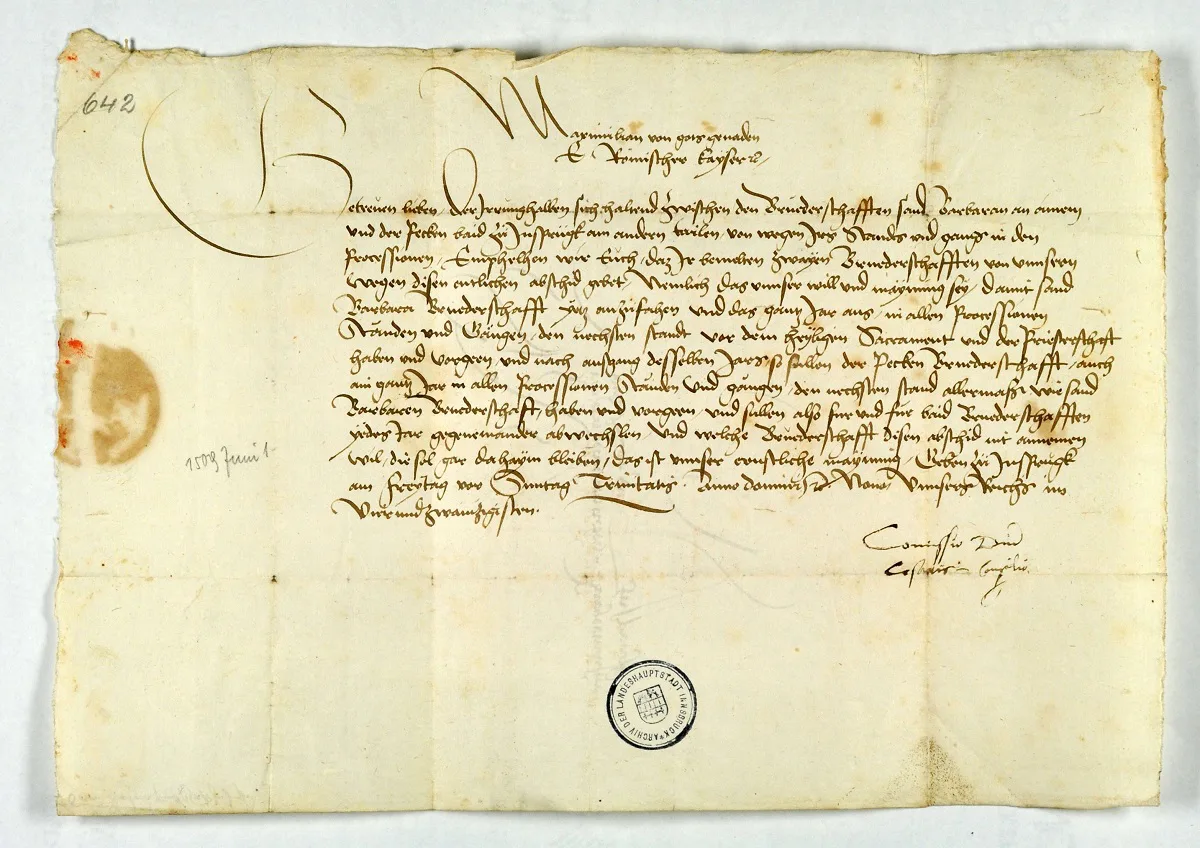 642
Maximilian von gots genaden
E. Römischer Kayser etc.
Getreuen lieben. Der Irrunghalben sich haltend zwischen den Bruederschafften sand Barbaran an ainem
und der Pecken baid zu Innsprugk am andern tailen, von wegen Irs Stands und gangs in den
Processionen, Emphelhen wir Euch, daz Ir bemelten zwayen Bruederschafften von unnsern
wegen disen entlichen abschid gebet, Nemlich das unnser will und maynung sey, damit sand
Barbara Bruederschafft yetz anzufahen und das gantz Jar aus, in allen Processionen
Ständen und Gängen, den nechsten standt vor dem heyligen Sacrament und der Priesterschafft
haben und vorgeen, und nach ausgang desselben Jars, so sullen der Pecken Bruederschafft, auch
ain gantz Jar in allen Processionen Ständen und gängen, den nechsten stand allermass wie sand
Barbaren Bruederschafft, haben und vorgeen, und sullen also für und für baid Bruederschafften
yedes Jar gegeneinander abwechslen, und welche Bruederschafft disen abschid nit annemen
wil, die sol gar dahaym bleiben, das ist unnser ernstliche maynung, Geben zu Innsprugk
am Freytag vor Sunntag Trinitatis. Anno domini etc. Nono Unnsers Reichs im
Vierundzwaintzigisten.
1509 Juni 1
Comissio Dni
Cesaris in Consilio
ARCHIV DER LANDESHAUPTSTADT INNSBRUCK